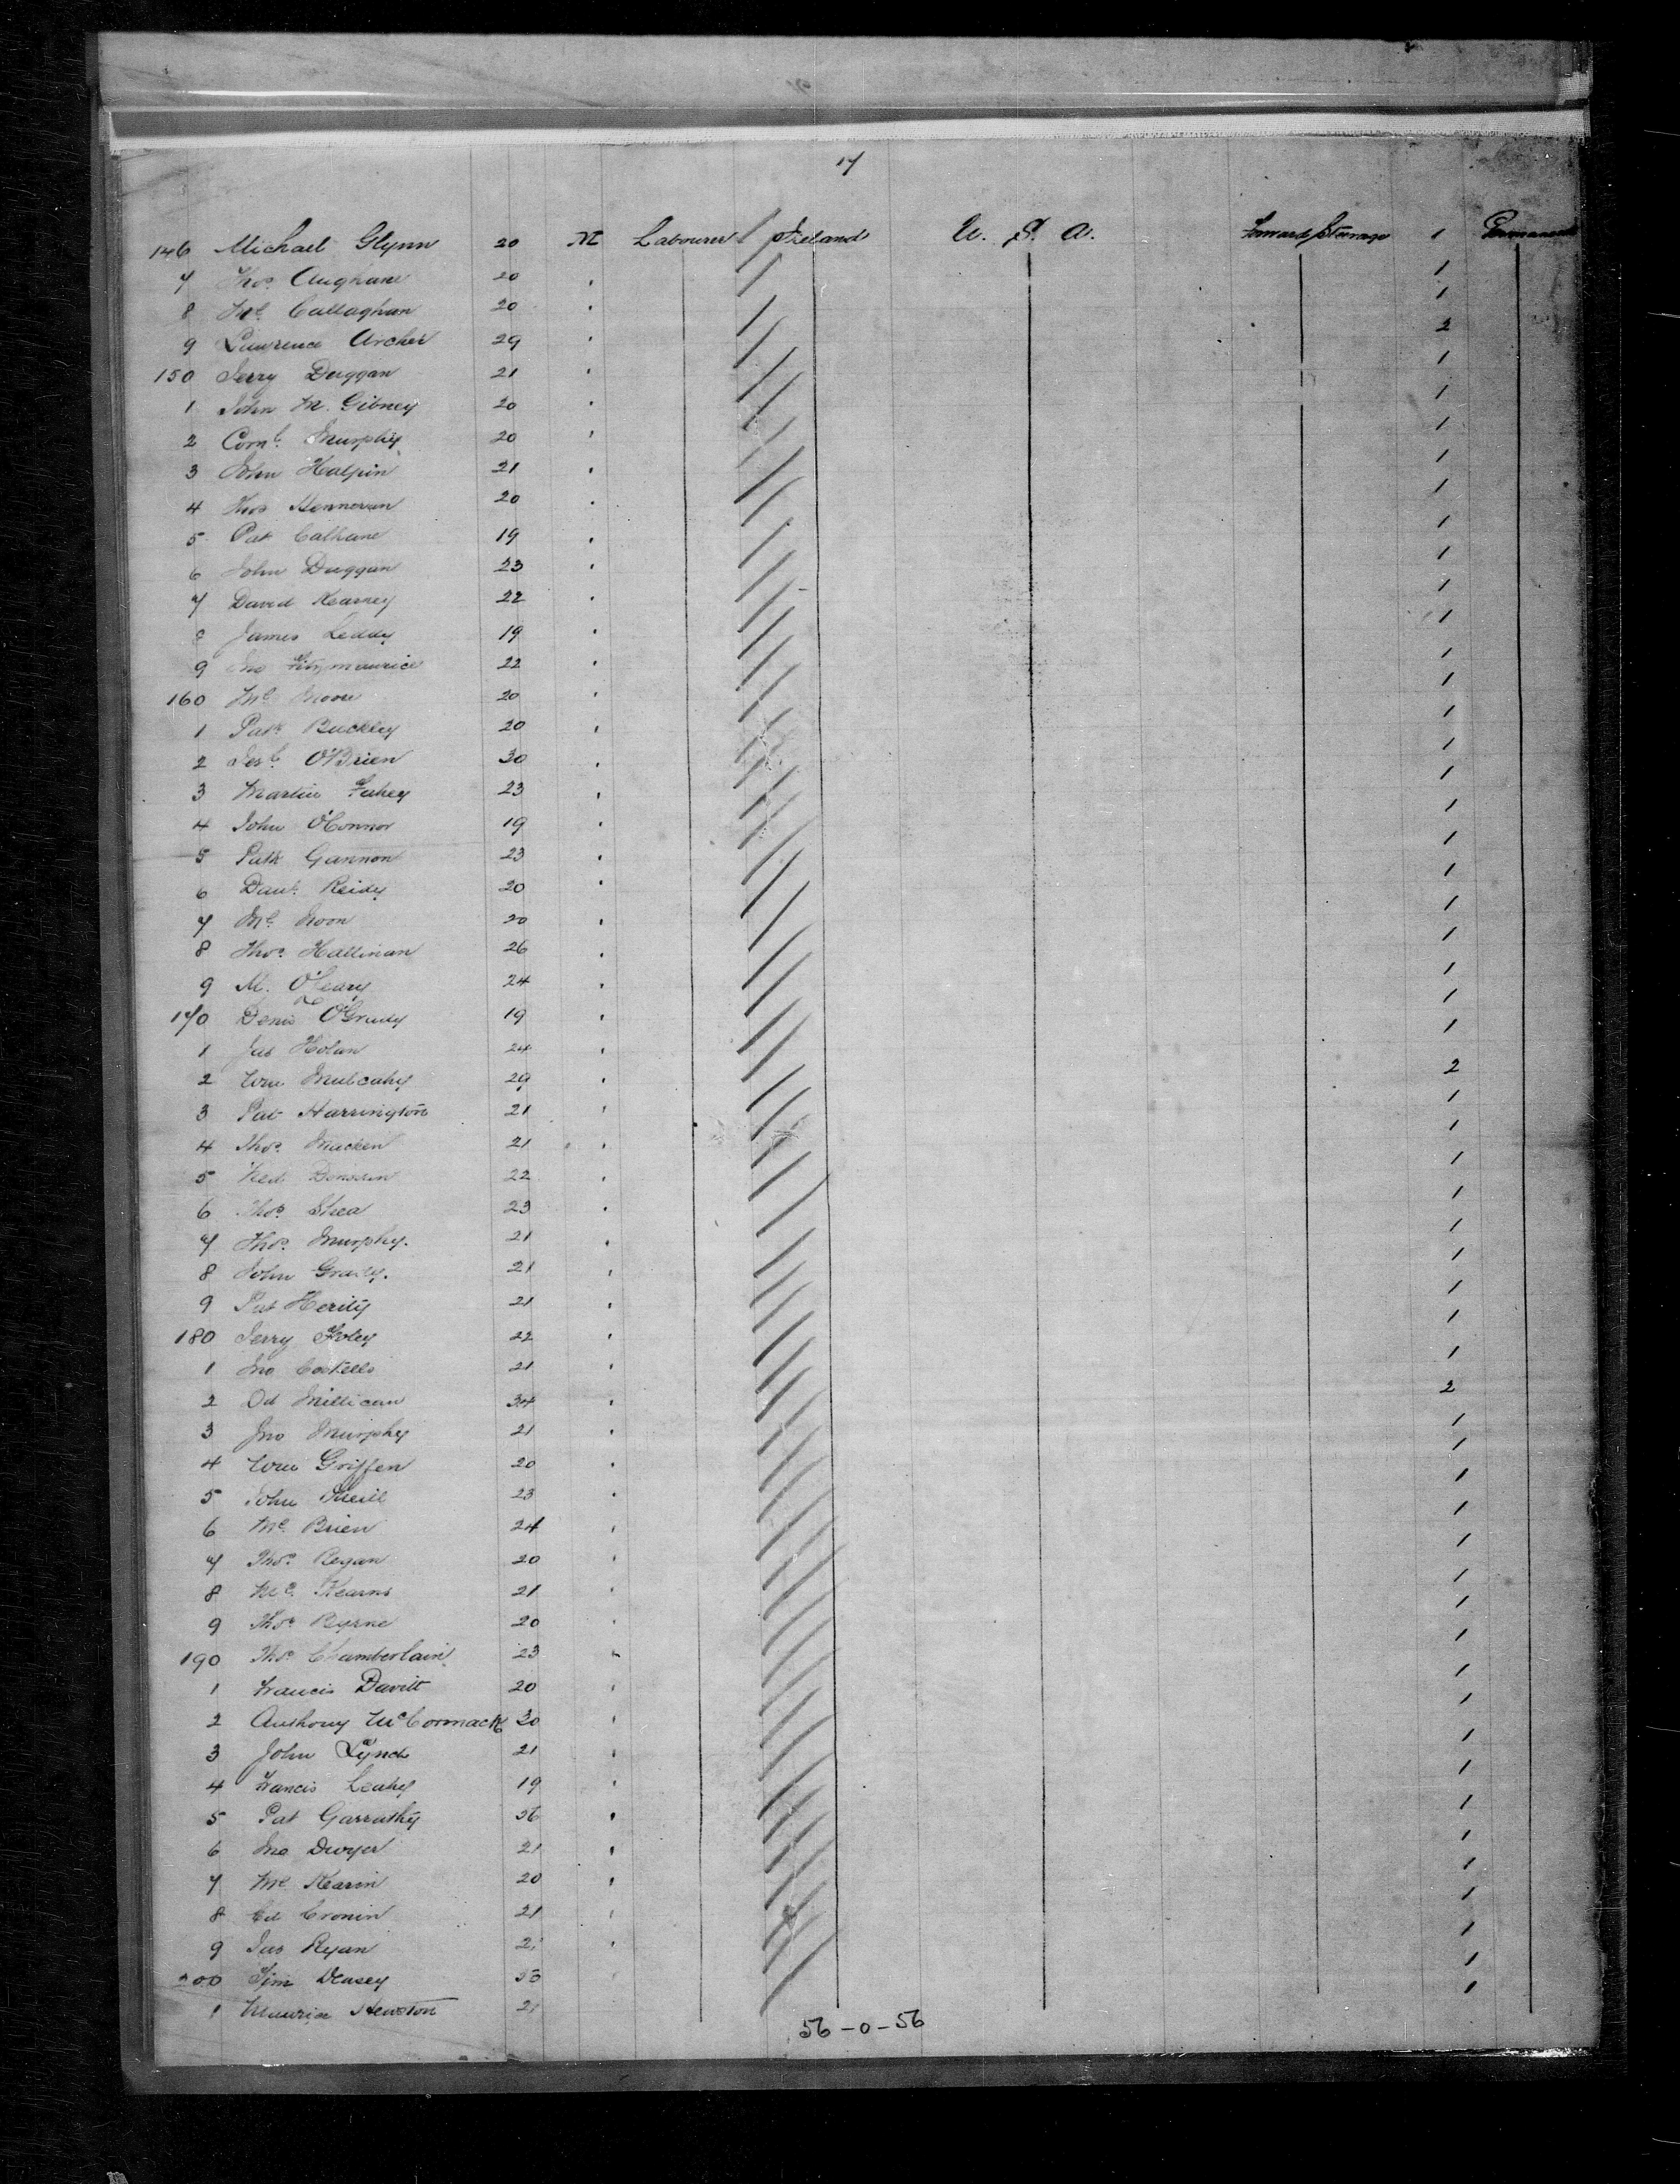 17
146 Michael Glynn 20 M Labourer Ireland U. S. A. Forward Steerage 1 Permanent
7 Thos. Aughane 20 " 1
8 Mc. Callaghan 20 " 1
9 Lawrence Archer 29 " 2
150 Jerry Duggan 21 " 1
1 John M. Gibney 20 " 1
2 Cornl. Murphy 20 " 1
3 John Halpin 21 " 1
4 Thos Hennovan 20 " 1
5 Pat Calhane 19 " 1
6 John Duggan 23 " 1
7 David Kearney 22 " 1
8 James Leddy 19 " 1
9 Jno Fitzmaurice 22 " 1
160 Mc. Moore 20 " 1
1 Patk. Buckley 20 " 1
2 O'Brien 30 " 1
3 Martin Fahey 23 " 1
4 John O'Connor 19 " 1
5 Patk Gannon 23 " 1
6 Danl. Reidy 20 " 1
7 Mc. Noon 20 " 1
8 Thos. Hallinan 26 " 1
9 M. O'Leary 24 " 1
170 Denis O'Grady 19 " 1
1 Jas Holan 24 " 1
2 Wm Mulcahy 29 " 2
3 Pat Harrington 21 " 1
4 Thos. Macken 21 " 1
5 22 " 1
6 Thos. Shea 23 " 1
7 Thos. Murphy. 21 " 1
8 John Grady. 21 " 1
9 Pat Herity 21 " 1
180 Jerry Foley 22 " 1
1 Jno Costello 21 " 1
2 Od Millican 34 " 2
3 Jno Murphy 21 " 1
4 Wm Griffen 20 " 1
5 John 23 " 1
6 Mc. Brien 24 " 1
7 Thos. Regan 20 " 1
8 Mc. Kearns 21 " 1
9 Thos. Byrne 20 " 1
190 Thos. Chamberlain 23 " 1
1 Francis Davitt 20 " 1
2 Anthony McCormack 30 " 1
3 John Lynch 21 " 1
4 Francis Leahy 19 " 1
5 Pat Garrathy 36 " 1
6 Jno Dwyer 21 " 1
7 Mc. Kearin 20 " 1
8 Ed Cronin 21 " 1
9 Jas Ryan " 1
200 Tim Deasey 1
1 Maurice Hewston 21 1
56-0-56